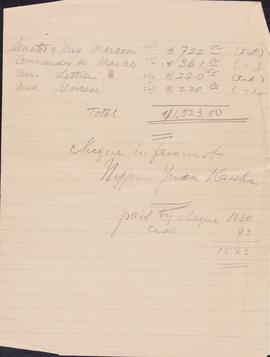 Senator & Mrs. Marconi $ 722.00 (Tot)
Commander de Marco $ 361.00 (")
Mr. Lettieri $ 220.00
Mrs. $ 220.00 (")
Total $1,523.00
cheque in favour of
Nippon Yusen Kaisha
paid by cheque 1430
cash 93
1523